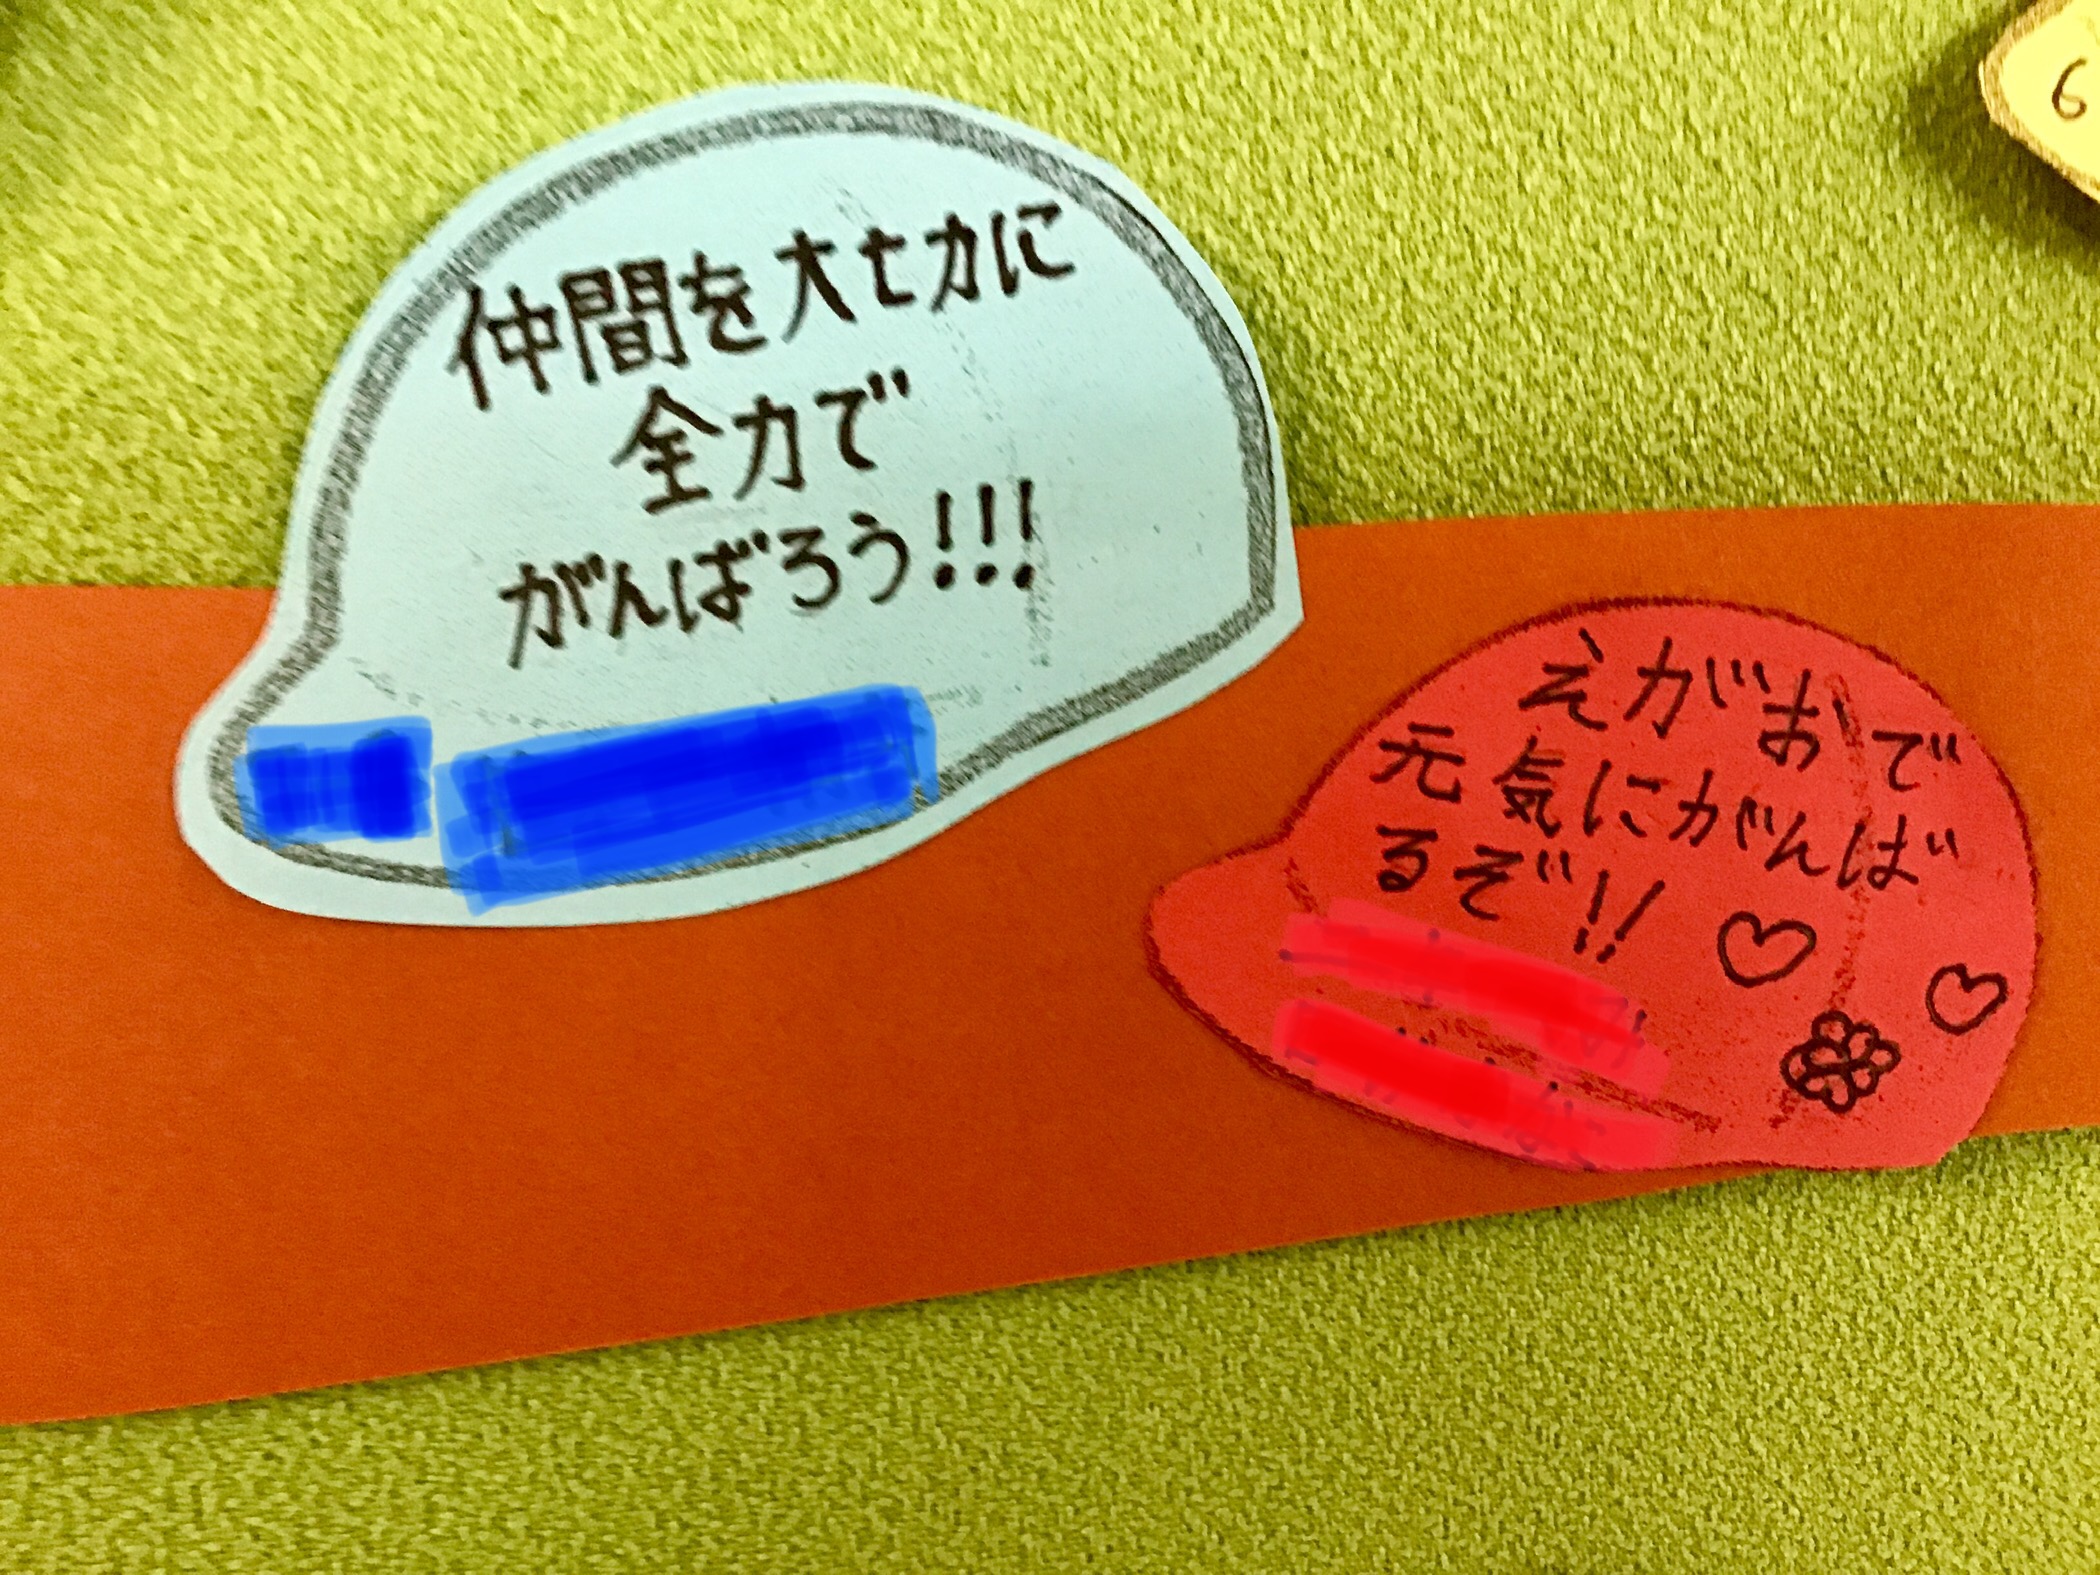 仲間を大切に
全力で
がんばろう!!!
えがおで
元気にがんば
るぞ!!
6